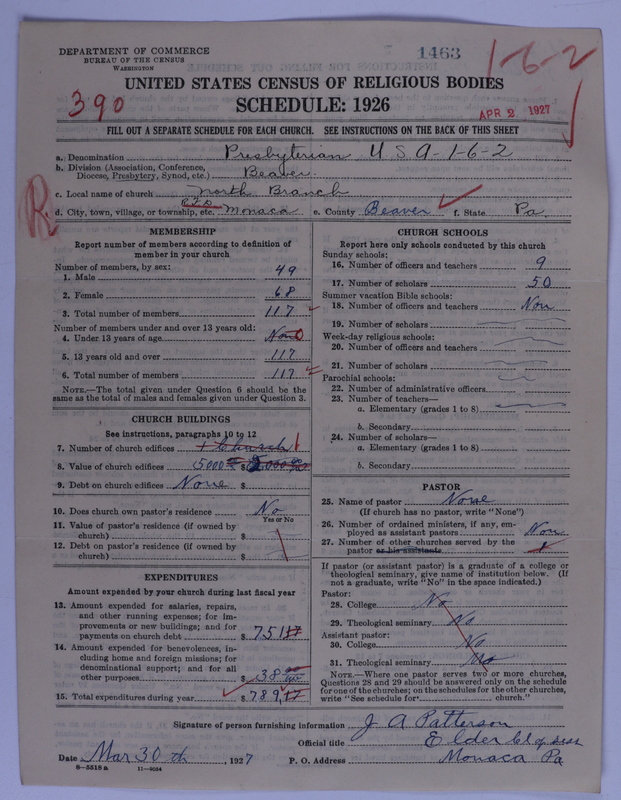 DEPARTMENT OF COMMERCE
BUREAU OF THE CENSUS
WASHINGTON
1463
1-6-2
UNITED STATES CENSUS OF RELIGIOUS BODIES
390
SCHEDULE: 1926
APR 2 1927
FILL OUT A SEPARATE SCHEDULE FOR EACH CHURCH. SEE INSTRUCTIONS ON THE BACK OF THIS SHEET
a. Denomination Presbyterian U S A-1-6-2
b. Division (Association, Conference, Diocese, Presbytery, Synod, etc.) Beaver
c. Local name of church North Branch
R
d. City, town, village, or township, etc. R.F.D. Monaca e. County Beaver f. State Pa.
MEMBERSHIP
Report number of members according to definition of
member in your church
Number of members, by sex:
1. Male 49
2. Female 68
3. Total number of members 117
Number of members under and over 13 years old:
4. Under 13 years of age None 0
5. 13 years old and over 117
6. Total number of members 117
NOTE.—The total given under Question 6 should be the
same as the total of males and females given under Question 3.
CHURCH BUILDINGS
See instructions, paragraphs 10 to 12
7. Number of church edifices 1 Church 1
8. Value of church edifices 5000 $
9. Debt on church edifices None $
10. Does church own pastor's residence No
Yes or No
11. Value of pastor's residence (if owned by
church) $
12. Debt on pastor's residence (if owned by
church) $
EXPENDITURES
Amount expended by your church during last fiscal year
13. Amount expended for salaries, repairs,
and other running expenses; for im-
provements or new buildings; and for
payments on church debt $ 751 17
14. Amount expended for benevolences, in-
cluding home and foreign missions; for
denominational support; and for all
other purposes $ 38 00
15. Total expenditures during year $ 789.17
CHURCH SCHOOLS
Report here only schools conducted by this church
Sunday schools:
16. Number of officers and teachers 9
17. Number of scholars 50
Summer vacation Bible schools:
18. Number of officers and teachers Non
19. Number of scholars
Week-day religious schools:
20. Number of officers and teachers
21. Number of scholars
Parochial schools:
22. Number of administrative officers
23. Number of teachers—
a. Elementary (grades 1 to 8)
b. Secondary
24. Number of scholars—
a. Elementary (grades 1 to 8)
b. Secondary
PASTOR
25. Name of pastor None
(If church has no pastor, write "None")
26. Number of ordained ministers, if any, em-
ployed as assistant pastors Non
27. Number of other churches served by the
pastor or his assistants
If pastor (or assistant pastor) is a graduate of a college or
theological seminary, give name of institution below. (If
not a graduate, write "No" in the space indicated.)
Pastor:
28. College No
29. Theological seminary No
Assistant pastor:
30. College No
31. Theological seminary No
NOTE.—Where one pastor serves two or more churches,
Questions 28 and 29 should be answered only on the schedule
for one of the churches; on the schedules for the other churches,
write "See schedule for church."
Signature of person furnishing information J A Patterson
Official title Elder Cl of Sess
Date Mar 30th, 1927 P. O. Address Monaca Pa
8—5518 a 11—9034